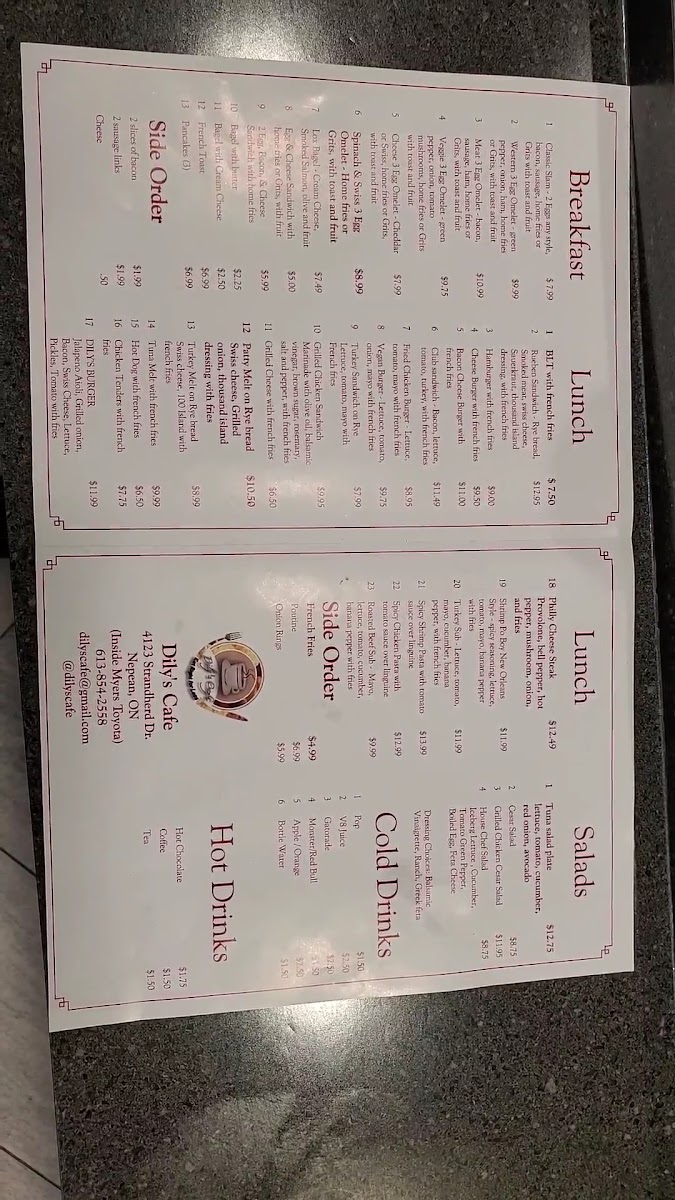 Breakfast
1 Classic Slam - 2 Eggs any style,
bacon, sausage, home fries or
Grits with toast and fruit $7.99
2 Western 3 Egg Omelet - green
pepper, onion, ham, home fries
or Grits, with toast and fruit $9.99
3 Meat 3 Egg Omelet - bacon,
sausage, ham, home fries or
Grits, with toast and fruit $10.99
4 Veggie 3 Egg Omelet - green
pepper, onion, tomato
mushrooms, home fries or Grits
with toast and fruit $9.75
5 Cheese 3 Egg Omelet - Cheddar
or Swiss, home fries or Grits,
with toast and fruit $7.99
6 Spinach & Swiss 3 Egg
Omelet - Home fries or
Grits, with toast and fruit $8.99
7 Lox Bagel - Cream Cheese,
Smoked Salmon, olive and fruit $7.49
8 Egg & Cheese Sandwich with
home fries or Grits, with fruit $5.00
9 2 Egg, Bacon, & Cheese
Sandwich with home fries $5.99
10 Bagel with butter $2.25
11 Bagel with Cream Cheese $2.50
12 French Toast $6.99
13 Pancakes (3) $6.99
Side Order
2 slices of bacon $1.99
2 sausage links $1.99
Cheese .50
Lunch
1 BLT with french fries $ 7.50
2 Rueben Sandwich - Rye bread,
Smoked meat, swiss cheese,
Sauerkraut, thousand island
dressing, with french fries $12.95
3 Hamburger with french fries $9.00
4 Cheese Burger with french fries $9.50
5 Bacon Cheese Burger with
french fries $11.00
6 Club sandwich - Bacon, lettuce,
tomato, turkey, with french fries $11.49
7 Fried Chicken Burger - Lettuce,
tomato, mayo with french fries $8.95
8 Vegan Burger - Lettuce, tomato,
onion, mayo with french fries $9.75
9 Turkey Sandwich on Rye
Lettuce, tomato, mayo with
French fries $7.99
10 Grilled Chicken Sandwich
Marinade with olive oil, balsamic
vinegar, brown sugar, rosemary,
salt and pepper, with french fries $9.95
11 Grilled Cheese with french fries $6.50
12 Patty Melt on Rye bread
Swiss cheese, Grilled
onion, thousand island
dressing with fries $10.50
13 Turkey Melt on Rye bread
Swiss cheese, 100 Island with
french fries $8.99
14 Tuna Melt with french fries $9.99
15 Hot Dog with french fries $6.50
16 Chicken Tenders with french
fries $7.75
17 DILY'S BURGER
Jalapeno Aioli, Grilled onion,
Bacon, Swiss Cheese, Lettuce,
Pickles, Tomato with fries $11.99
Lunch
18 Philly Cheese Steak
Provolone, bell pepper, hot
pepper, mushroom, onion,
and fries $12.49
19 Shrimp Po Boy New Orleans
Style - spicy seasoning, lettuce,
tomato, mayo, banana pepper
with fries $11.99
20 Turkey Sub - Lettuce, tomato,
mayo, cucumber, banana
pepper, with french fries $11.99
21 Spicy Shrimp Pasta with tomato
sauce over linguine $13.99
22 Spicy Chicken Pasta with
tomato sauce over linguine $12.99
23 Roasted Beef Sub - Mayo,
lettuce, tomato, cucumber,
banana pepper with fries $9.99
Side Order
French Fries $4.99
Poutine $6.99
Onion Rings $5.99
Dily's Cafe
4123 Strandherd Dr.
Nepean, ON
(Inside Myers Toyota)
613-854-2558
dilyscafe@gmail.com
@dilyscafe
Salads
1 Tuna salad plate
lettuce, tomato, cucumber,
red onion, avocado $12.75
2 Cesar Salad $8.75
3 Grilled Chicken Cesar Salad $11.95
4 House Chef Salad
Iceberg Lettuce, Cucumber,
Tomato Green Pepper,
Boiled Egg, Feta Cheese $8.75
Dressing Choices: Balsamic
Vinaigrette, Ranch, Greek feta
Cold Drinks
1 Pop $1.50
2 V8 Juice $2.50
3 Gatorade $2.50
4 Monster/Red Bull
5 Apple / Orange
6 Bottle Water $1.50
Hot Drinks
Hot Chocolate $1.75
Coffee $1.50
Tea $1.50